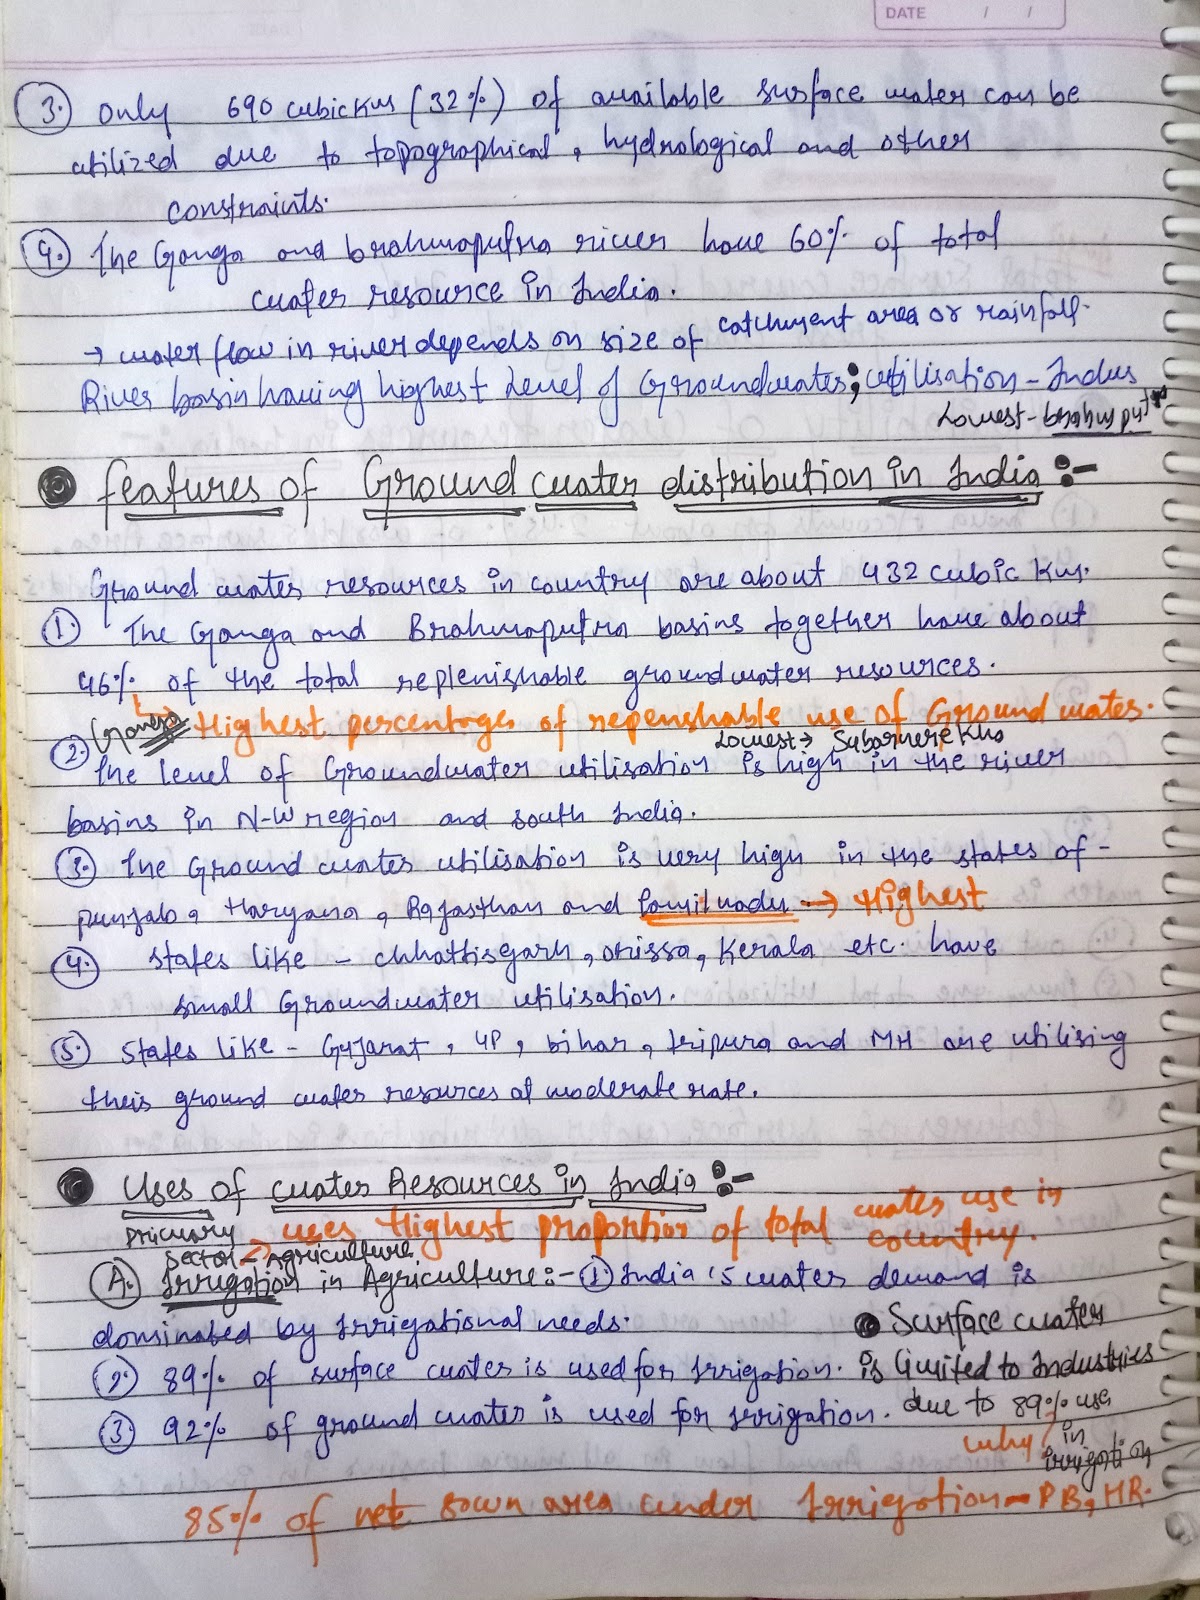 DATE / /
3. Only 690 cubic kms (32%) of available surface water can be
utilized due to topographical, hydrological and other
constraints.
4. The Ganga and brahmaputra river have 60% of total
water resource in India.
→ water flow in river depends on size of catchment area or rainfall.
River basin having highest level of Groundwater utilisation - Indus
Lowest - brahmputra
features of Ground water distribution in India :-
Ground water resources in country are about 432 cubic km.
1. The Ganga and Brahmaputra basins together have about
46% of the total replenishable groundwater resources.
Ganga Highest percentage of repenshable use of Ground water.
Lowest → Subarnerekha
2. The level of Groundwater utilisation is high in the river
basins in N-W region and south India.
3. The Ground water utilisation is very high in the states of -
punjab, Haryana, Rajasthan and Tamilnadu → Highest
4. states like - chhattisgarh, orissa, Kerala etc. have
small Groundwater utilisation.
5. States like - Gujarat, UP, bihar, tripura and MH are utilising
their ground water resources at moderate rate.
Uses of water Resources in India :-
Primary sector - Agriculture → uses Highest proportion of total water use in country.
A. Irrigation in Agriculture :- 1. India's water demand is
dominated by Irrigational needs.
2. 89% of surface water is used for Irrigation.
3. 92% of ground water is used for Irrigation.
Surface water
is limited to Industries
due to 89% use
in
irrigation
why?
85% of net sown area under Irrigation - PB, HR.